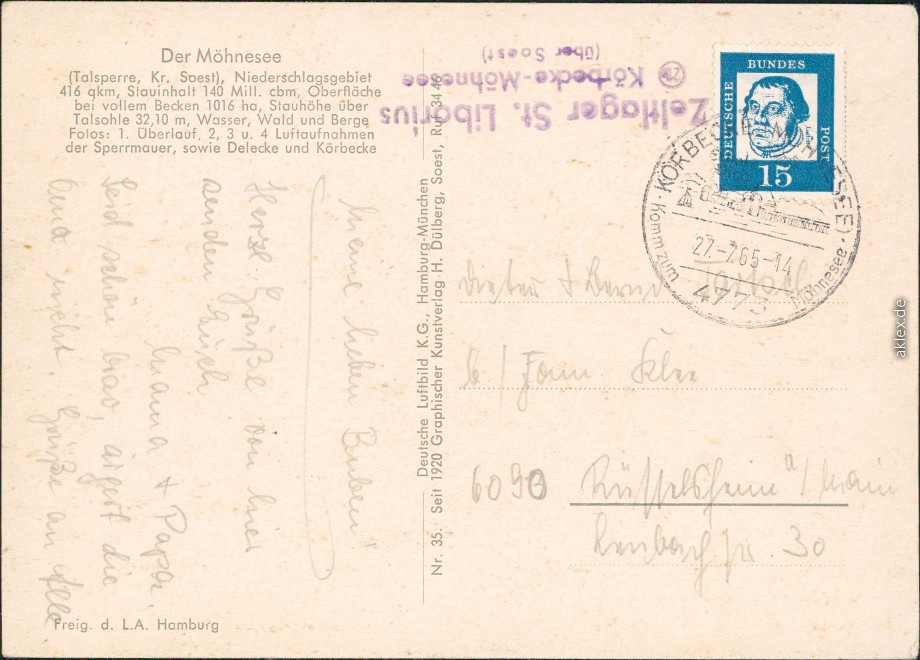 Der Möhnesee
(Talsperre, Kr. Soest), Niederschlagsgebiet
416 qkm, Stauinhalt 140 Mill. cbm, Oberfläche
bei vollem Becken 1016 ha, Stauhöhe über
Talsohle 32,10 m, Wasser, Wald und Berge
Fotos: 1. Überlauf, 2, 3 u. 4 Luftaufnahmen
der Sperrmauer, sowie Delecke und Körbecke
Meine lieben Buben
Herzl. Grüße von hier
senden Euch
Mama + Papa
Seid schön brav, ärgert die
Oma nicht. Grüße an Alle
Freig. d. L.A. Hamburg
Deutsche Luftbild K.G., Hamburg-München
Nr. 35. Seit 1920 Graphischer Kunstverlag H. Dülberg, Soest, Ruf 3446
Zeltlager St. Liborius
Körbecke-Möhnesee
(über Soest)
DEUTSCHE BUNDES POST
15
KÖRBECKE (MÖHNESEE)
27.-7.65-14
4773
Kommt zum Möhnesee
Dieter + Bernd
b/ Fam Klee
6090 Rüsselsheim / Main
Lenbachstr. 30
aklex.de